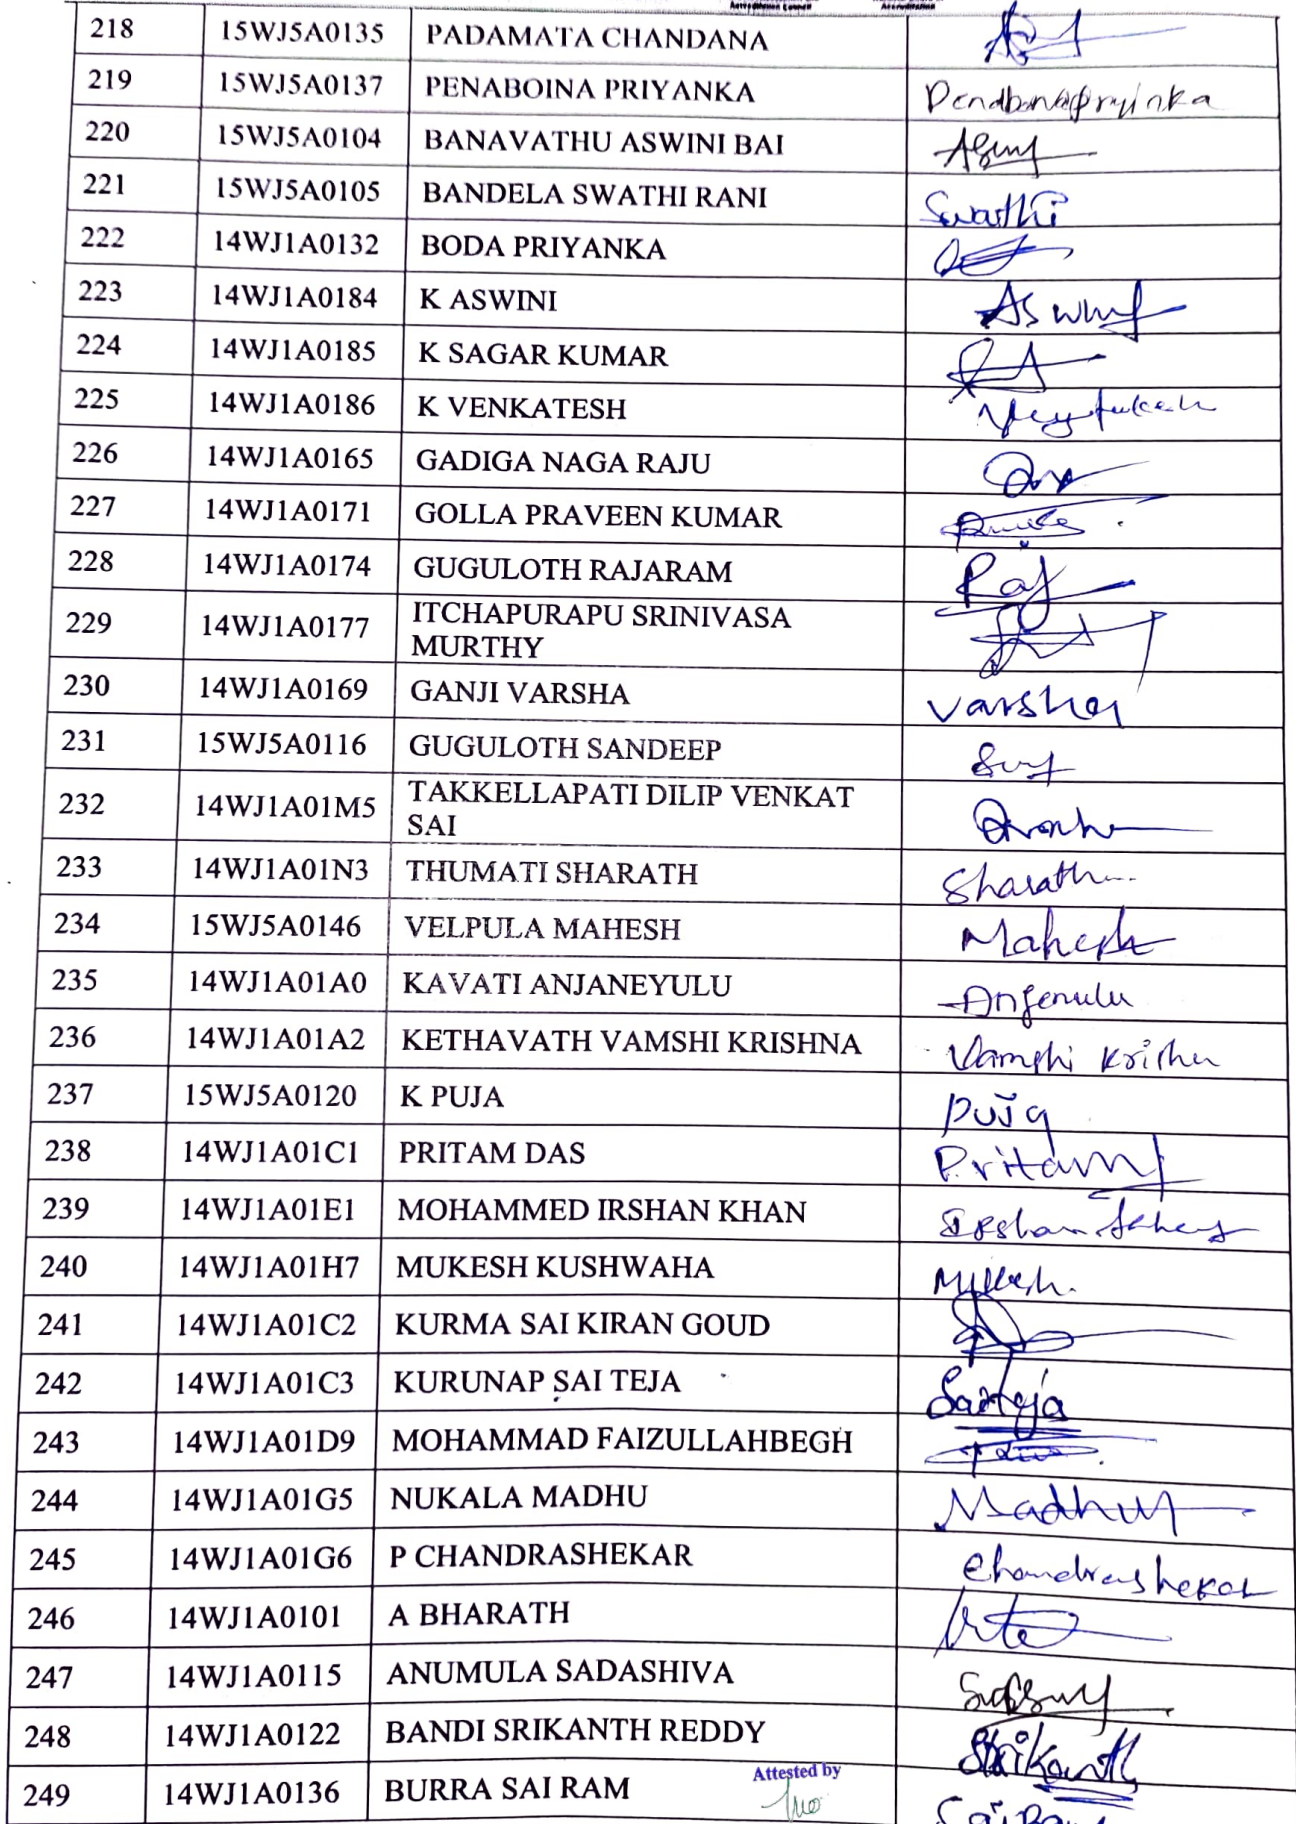 Accreditation Council Accreditation
218 15WJ5A0135 PADAMATA CHANDANA
219 15WJ5A0137 PENABOINA PRIYANKA
220 15WJ5A0104 BANAVATHU ASWINI BAI
221 15WJ5A0105 BANDELA SWATHI RANI Swathi
222 14WJ1A0132 BODA PRIYANKA
223 14WJ1A0184 K ASWINI Aswini
224 14WJ1A0185 K SAGAR KUMAR
225 14WJ1A0186 K VENKATESH
226 14WJ1A0165 GADIGA NAGA RAJU
227 14WJ1A0171 GOLLA PRAVEEN KUMAR
228 14WJ1A0174 GUGULOTH RAJARAM Raj
229 14WJ1A0177 ITCHAPURAPU SRINIVASA
MURTHY
230 14WJ1A0169 GANJI VARSHA Varsha
231 15WJ5A0116 GUGULOTH SANDEEP
232 14WJ1A01M5 TAKKELLAPATI DILIP VENKAT
SAI
233 14WJ1A01N3 THUMATI SHARATH Sharath
234 15WJ5A0146 VELPULA MAHESH Mahesh
235 14WJ1A01A0 KAVATI ANJANEYULU Anjenulu
236 14WJ1A01A2 KETHAVATH VAMSHI KRISHNA Vamshi
237 15WJ5A0120 K PUJA Puja
238 14WJ1A01C1 PRITAM DAS Pritam
239 14WJ1A01E1 MOHAMMED IRSHAN KHAN
240 14WJ1A01H7 MUKESH KUSHWAHA Mukesh.
241 14WJ1A01C2 KURMA SAI KIRAN GOUD
242 14WJ1A01C3 KURUNAP SAI TEJA Saiteja
243 14WJ1A01D9 MOHAMMAD FAIZULLAHBEGH
244 14WJ1A01G5 NUKALA MADHU Madhu
245 14WJ1A01G6 P CHANDRASHEKAR Chandrashekar
246 14WJ1A0101 A BHARATH
247 14WJ1A0115 ANUMULA SADASHIVA
248 14WJ1A0122 BANDI SRIKANTH REDDY Srikanth
249 14WJ1A0136 BURRA SAI RAM Sai Ram
Attested by